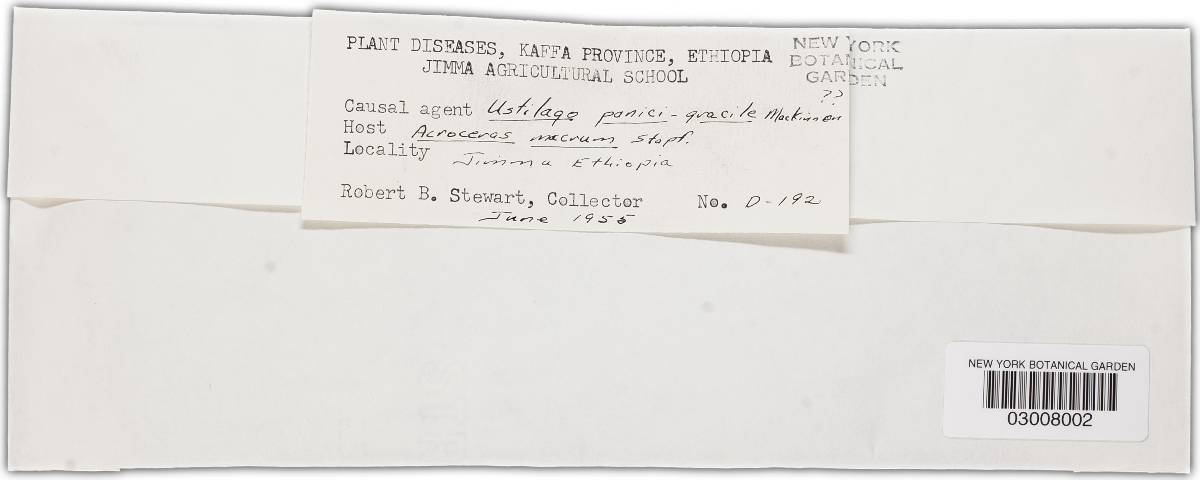 PLANT DISEASES, KAFFA PROVINCE, ETHIOPIA
JIMMA AGRICULTURAL SCHOOL
NEW YORK
BOTANICAL
GARDEN
??
Causal agent Ustilago panici-gracile Mackinnon
Host Acroceras macrum Stapf.
Locality Jimma Ethiopia
Robert B. Stewart, Collector No. D-192
June 1955
NEW YORK BOTANICAL GARDEN
03008002